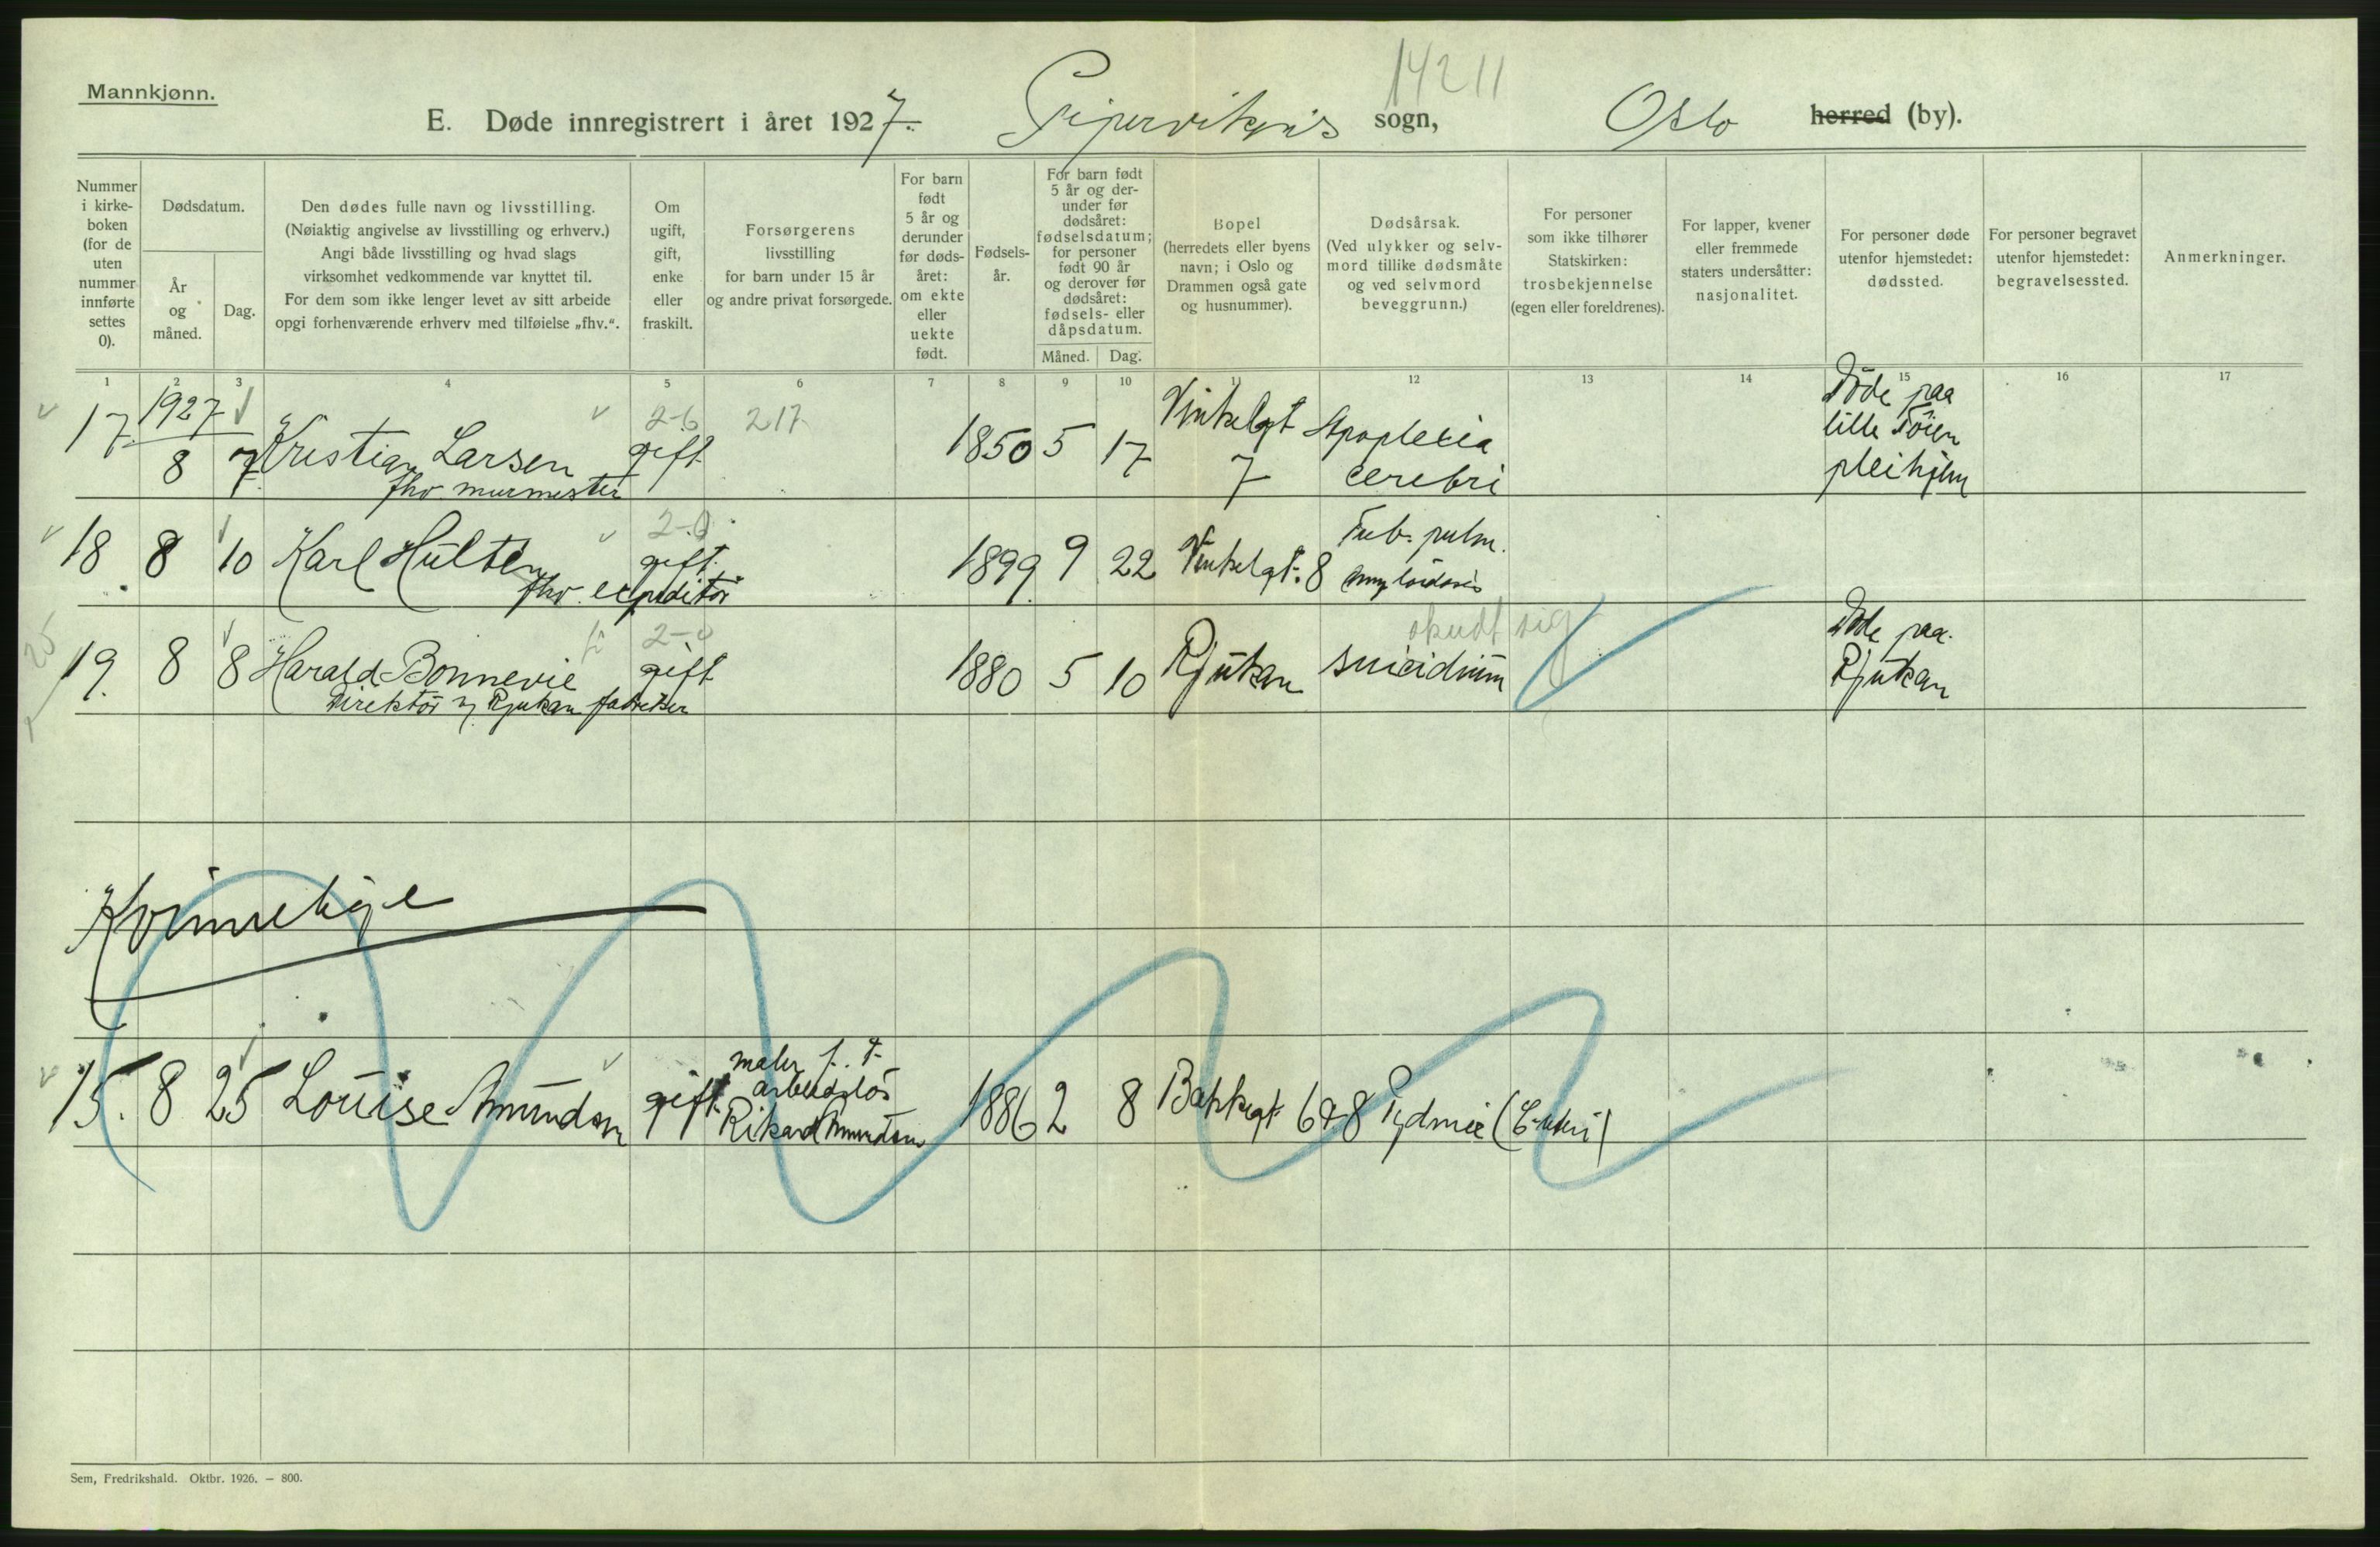 Mannkjønn.
14211
E. Døde innregistrert i året 1927. Pipervikens sogn, Oslo herred (by).
Nummer i kirke-boken (for de uten nummer innførte settes 0).
Dødsdatum.
År og måned.
Dag.
Den dødes fulle navn og livsstilling.
(Nøiaktig angivelse av livsstilling og erhverv.)
Angi både livsstilling og hvad slags
virksomhet vedkommende var knyttet til.
For dem som ikke lenger levet av sitt arbeide
opgi forhenværende erhverv med tilføielse „fhv.“.
Om ugift, gift, enke eller fraskilt.
Forsørgerens
livsstilling
for barn under 15 år
og andre privat forsørgede.
For barn født 5 år og derunder før døds-året: om ekte eller uekte født.
Fødsels-år.
For barn født 5 år og der-under før dødsåret: fødselsdatum; for personer født 90 år og derover før dødsåret: fødsels- eller dåpsdatum.
Måned.
Dag.
Bopel
(herredets eller byens
navn; i Oslo og
Drammen også gate
og husnummer).
Dødsårsak.
(Ved ulykker og selv-
mord tillike dødsmåte
og ved selvmord
beveggrunn.)
For personer
som ikke tilhører
Statskirken:
trosbekjennelse
(egen eller foreldrenes).
For lapper, kvener
eller fremmede
staters undersåtter:
nasjonalitet.
For personer døde
utenfor hjemstedet:
dødssted.
For personer begravet
utenfor hjemstedet:
begravelsessted.
Anmerkninger.
1 2 3 4 5 6 7 8 9 10 11 12 13 14 15 16 17
17. 1927 8 7. Kristian Larsen 2-6 gift 217 1850 5 17 Vinkelgt 7 Apoplexia cerebri Döde paa lille Töien pleihjem
fhv murmester
18 8 10 Karl Hülten 2-0 gift 1899 9 22 Vinkelgt. 8 Tub. pulm. Amyloidosis
fhv. expeditör
25
19. 8 8 Harald Bonnevie 2-0 gift 1880 5 10 Rjukan skudt sig suicidium Döde paa Rjukan
Direktör v Rjukan fabrikker
Kvinnekjøn
15. 8 25 Louise Amundsen gift maler f. t. arbeidslös Rikard Amundsen 1886 2 8 Bakkegt 6 Pydmie
Sem, Fredrikshald. Oktbr. 1926. – 800.